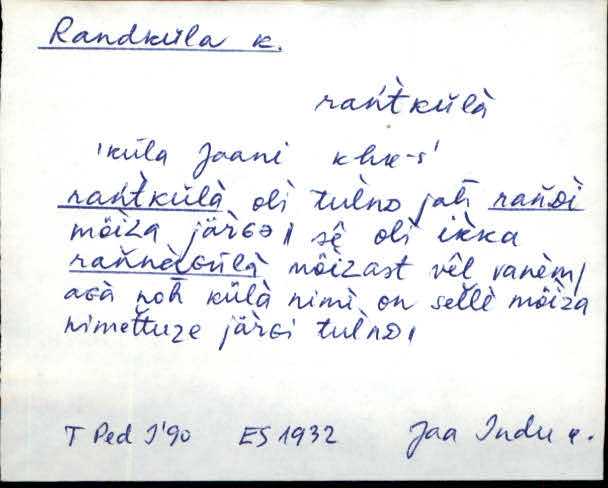 Randküla k.
rań̀tkülà
'küla Jaani khk-s'
rań̀tkülà oli tùlnD jah rańdi
mȭiza järGə, sȇ oli ikka
rańnèGülà mȭizast vêl vanèm,
aGà noh külà nimì on sellè mȭiza
nimettuze järGi tulnD,
T Ped I'90 ES 1932 Jaa Indu k.